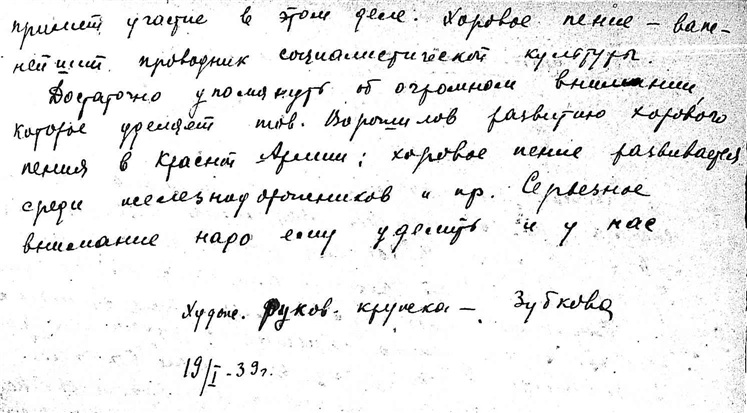 примет участие в этом деле. Хоровое пение – важ-
нейший проводник социалистической культуры.
Достаточно упомянуть об огромном внимании,
которое уделяет тов. Ворошилов развитию хорового
пения в Красной Армии; хоровое пение развивается
среди железнодорожников и пр. Серьезное
внимание надо ему уделить и у нас
Худож. руков. кружка – Зубкова
19/I-39г.